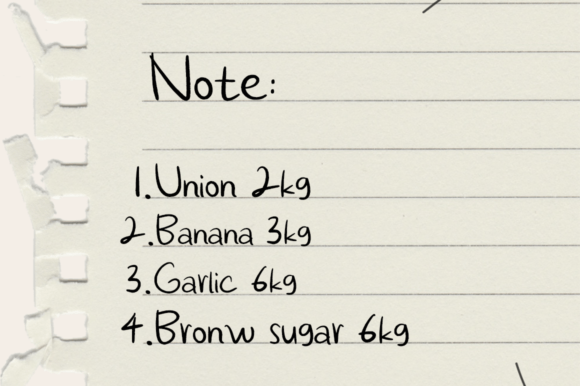 Note:
1.Union 2kg
2.Banana 3kg
3.Garlic 6kg
4.Bronw sugar 6kg